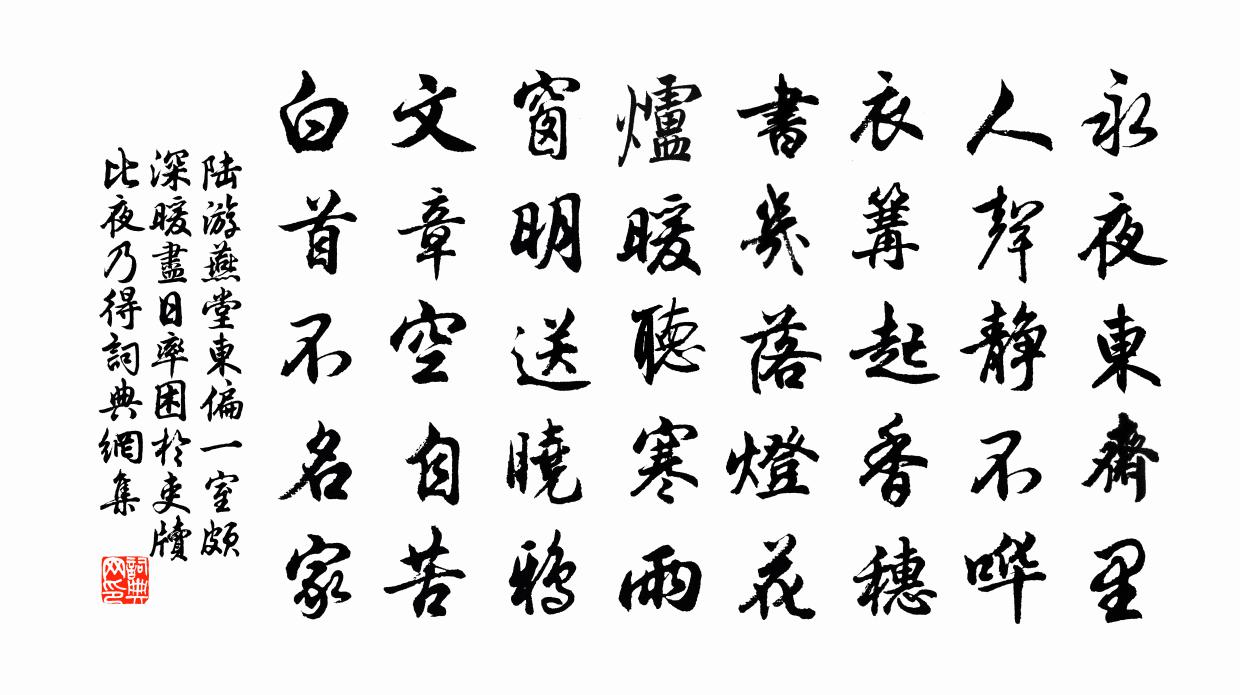 永夜東齋里
人聲靜不嘩
衣篝起香穗
書幾落燈花
爐暖聽寒雨
窗明送曉鴉
文章空自苦
白首不名家
陆游燕堂東偏一室頗
深暖盡日率困於吏牘
比夜乃得詞典網集
詞典网印